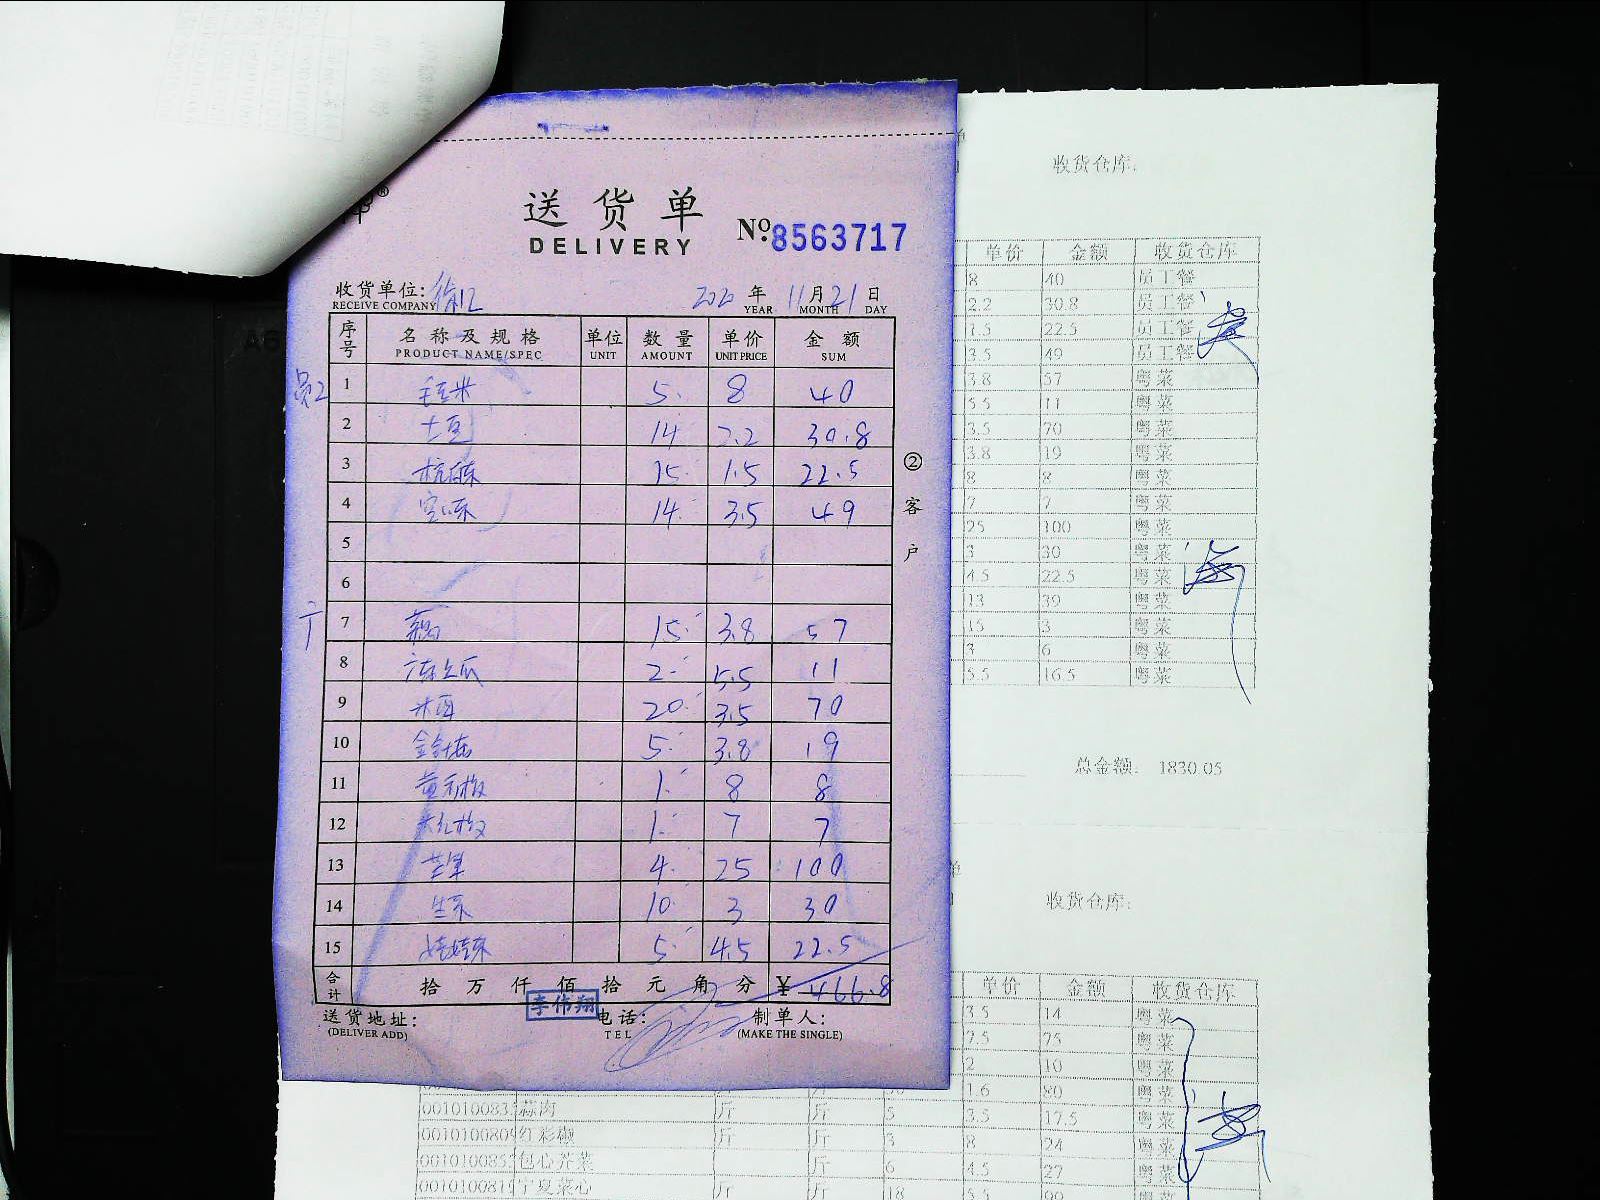 送货单
DELIVERY
No. 8563717
收货单位:
RECEIVE COMPANY
2020 年 11 月 21 日
YEAR MONTH DAY
序号 名称及规格 单位 数量 单价 金额
PRODUCT NAME/SPEC UNIT AMOUNT UNIT PRICE SUM
1 毛豆米 5 8 40
2 土豆 14 2.2 30.8
3 15 1.5 22.5
4 14 3.5 49
5
6
7 15 3.8 57
8 2 5.5 11
9 木耳 20 3.5 70
10 金针菇 5 3.8 19
11 黄彩椒 1 8 8
12 1 7 7
13 芒果 4 25 100
14 生菜 10 3 30
15 娃娃菜 5 4.5 22.5
合计 拾 万 仟 佰 拾 元 角 分 ¥ 466.8
李伟翔
送货地址: 电话: 制单人:
(DELIVER ADD) TEL (MAKE THE SINGLE)
② 客户
收货仓库:
单价 金额 收货仓库
8 40 员工餐
2.2 30.8 员工餐
1.5 22.5 员工餐
3.5 49 员工餐
3.8 57 粤菜
5.5 11 粤菜
3.5 70 粤菜
3.8 19 粤菜
8 8 粤菜
7 7 粤菜
25 100 粤菜
3 30 粤菜
4.5 22.5 粤菜
13 39 粤菜
15 3 粤菜
3 6 粤菜
5.5 16.5 粤菜
总金额: 1830.05
收货仓库:
单价 金额 收货仓库
3.5 14 粤菜
7.5 75 粤菜
2 10 粤菜
1.6 80 粤菜
蒜肉 斤 斤 5 3.5 17.5 粤菜
红彩椒 斤 斤 3 8 24 粤菜
包心芥菜 斤 6 4.5 27 粤菜
宁夏菜心 斤 斤 18 5.5 99 粤菜